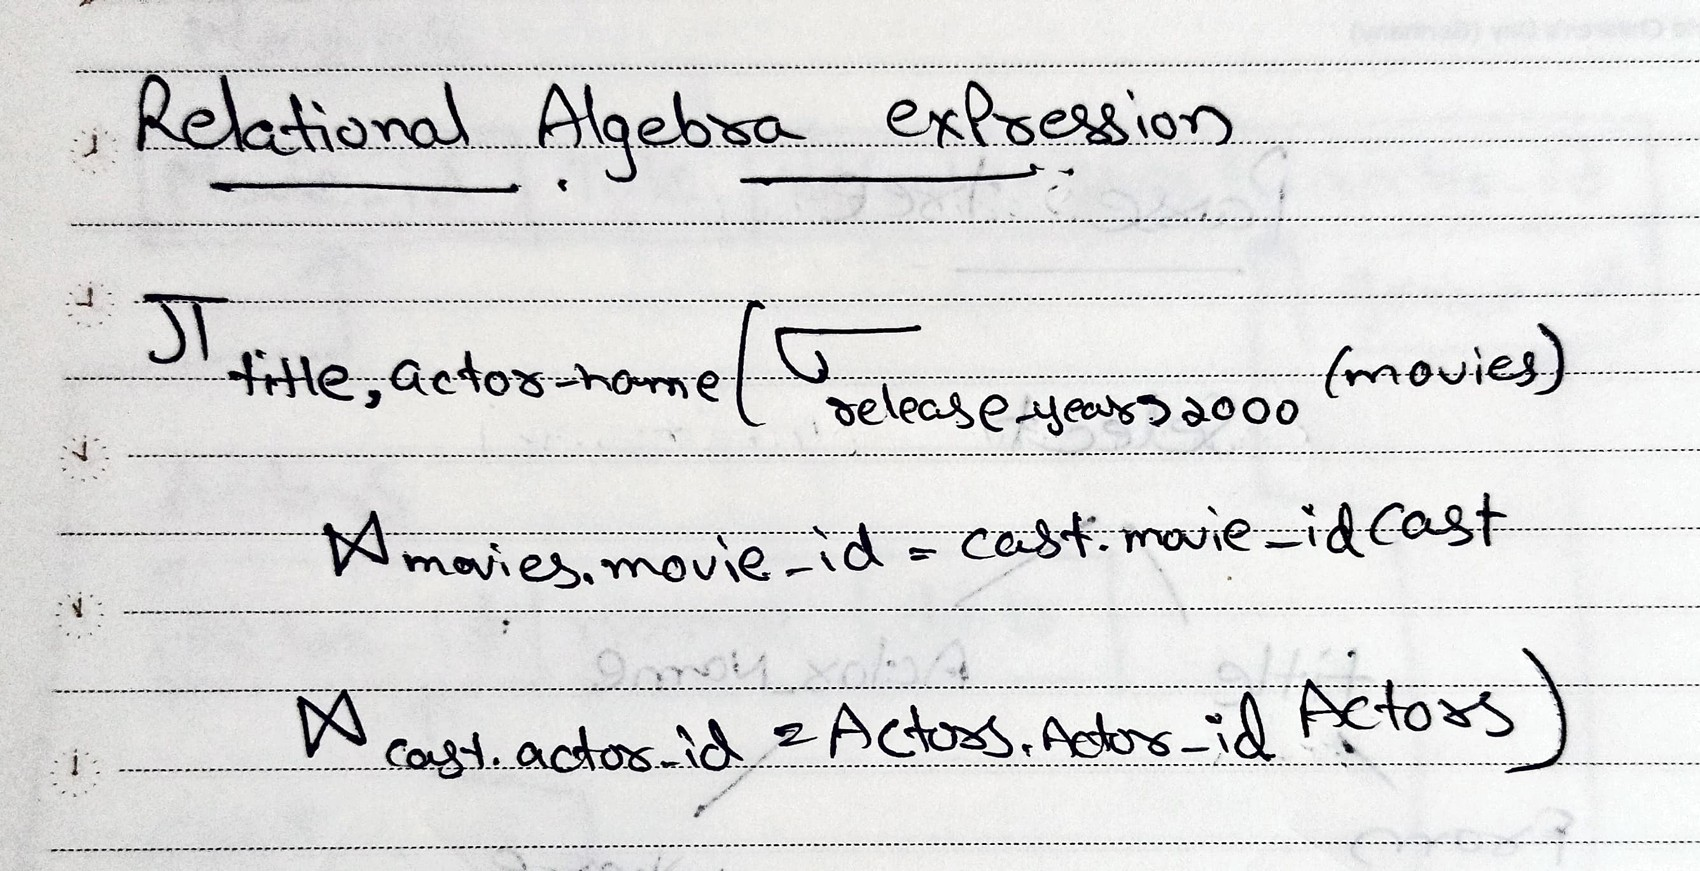 Relational Algebra expression
π title, actor-name (σ release-year>2000 (movies)
⋈ movies.movie_id = cast.movie_id Cast
⋈ cast.actor_id = Actors.Actor_id Actors)